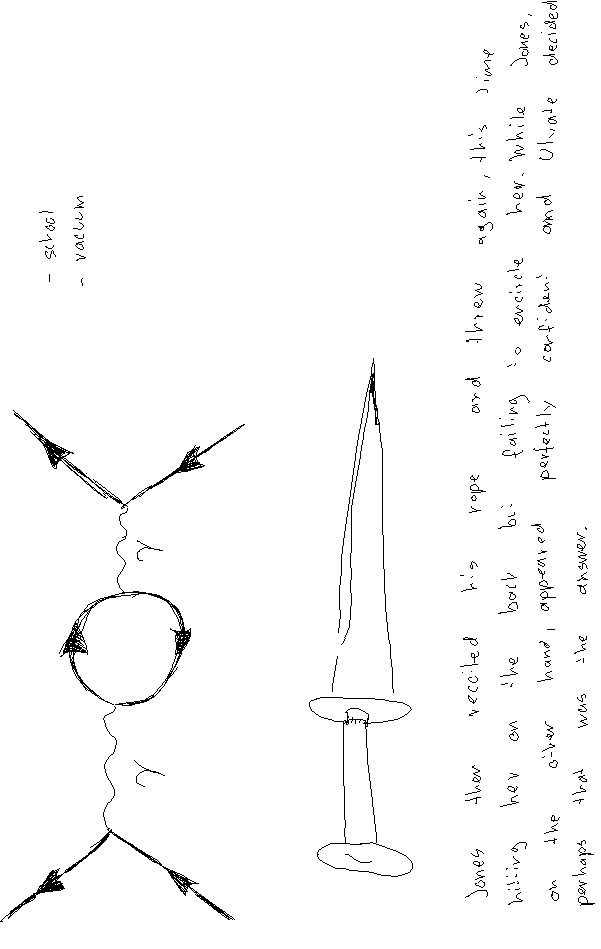 γ γ
- school
- vacuum
Jones then recoiled his rope and threw again, this time
hitting her on the back but failing to encircle her. While Jones,
on the other hand, appeared perfectly confident and decided
perhaps that was the answer.